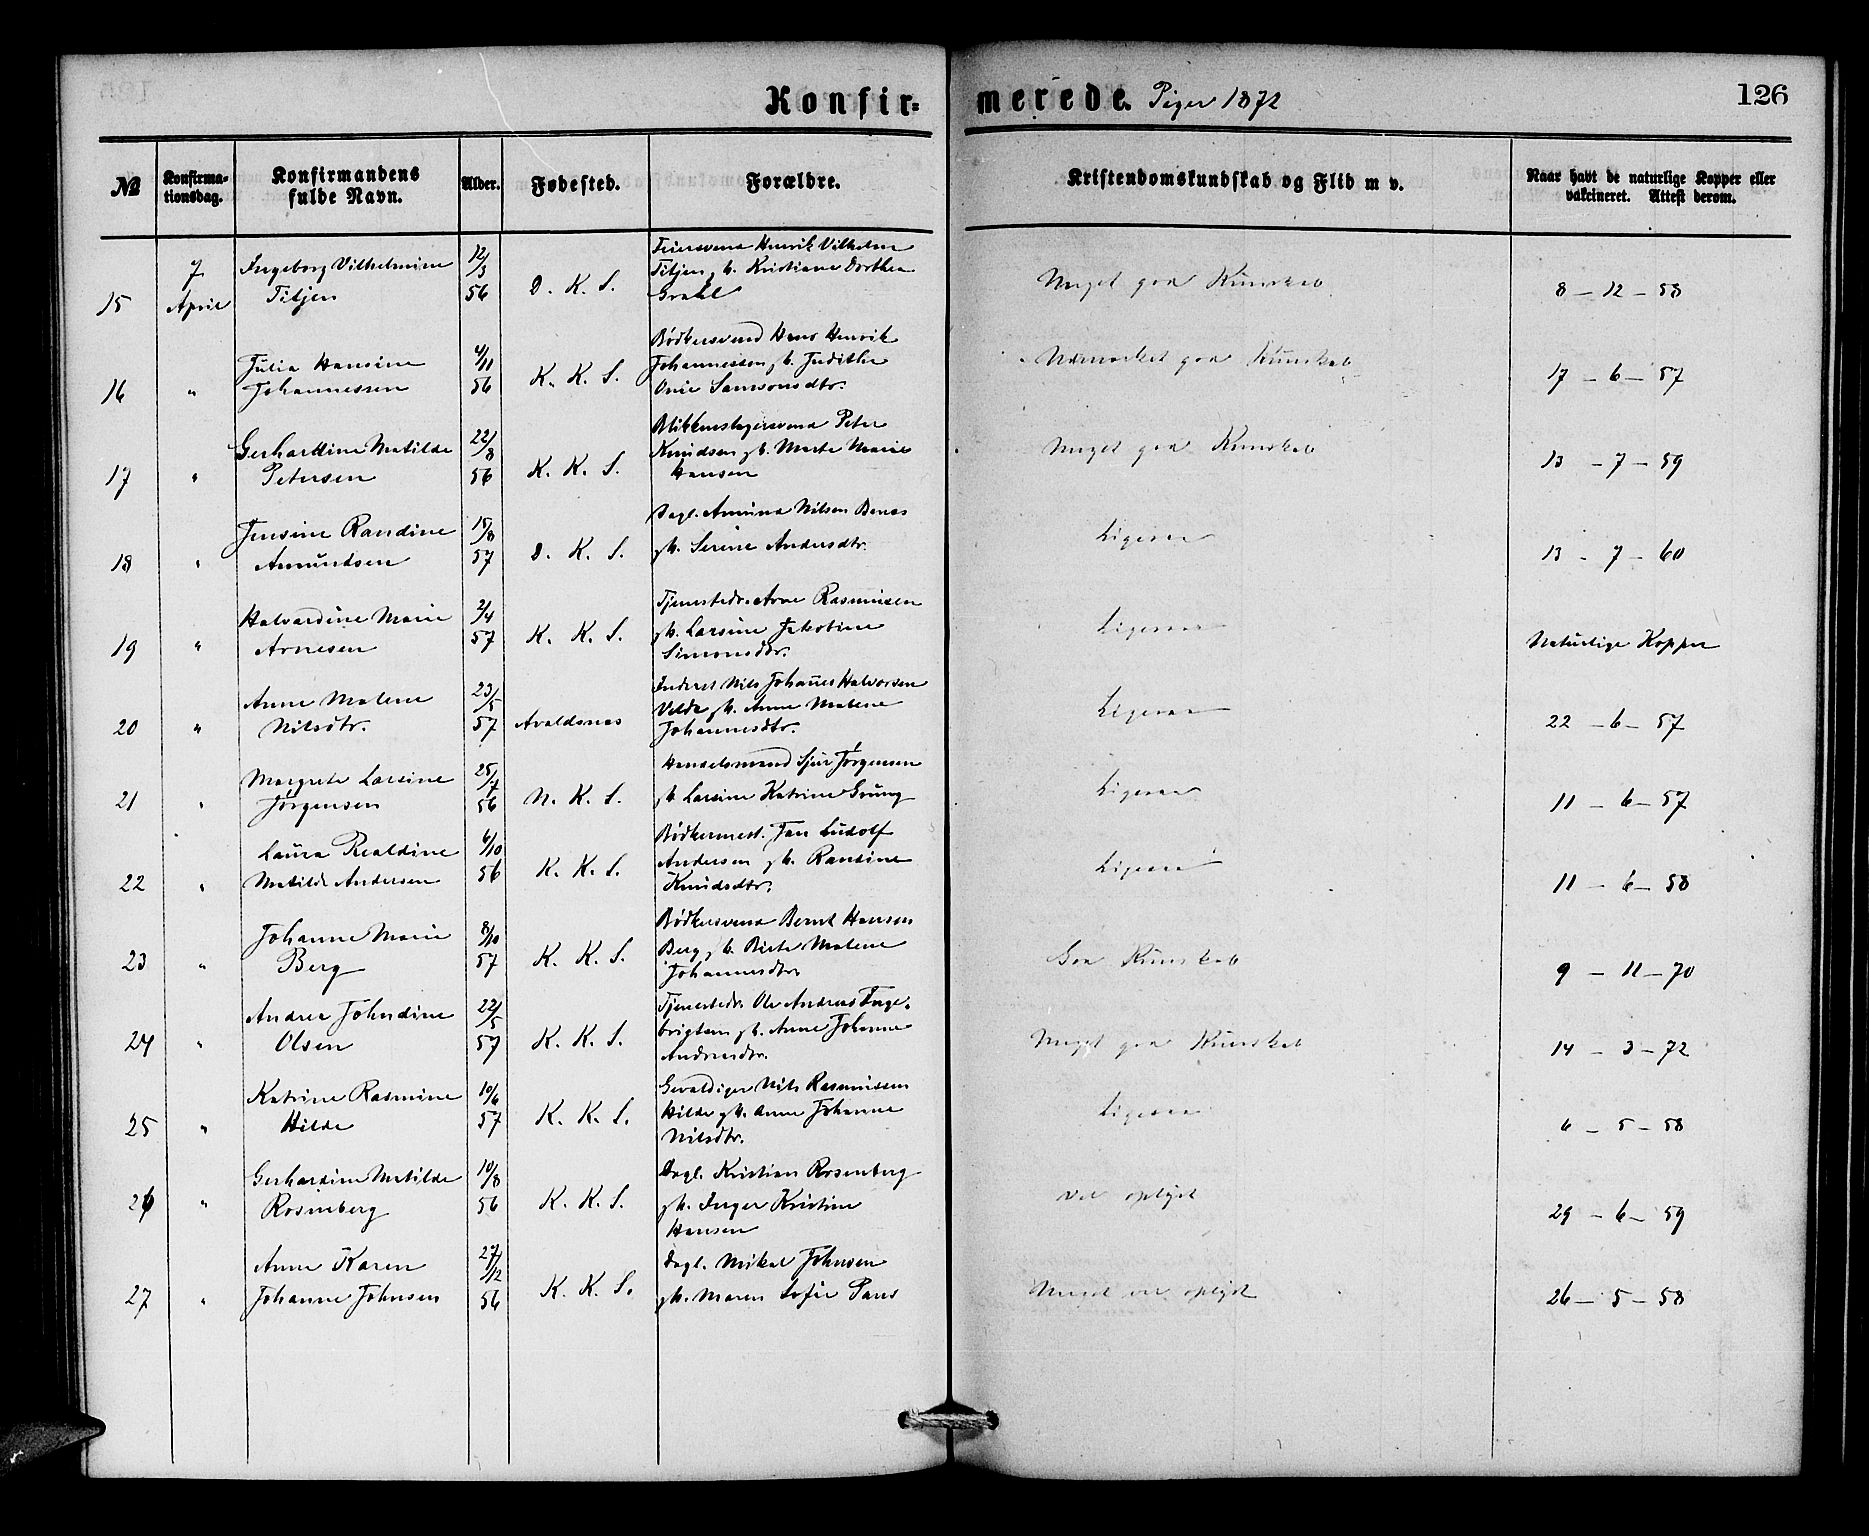 Konfirmerede. Piger 1872
126
№
Konfirma-
tionsdag.
Konfirmandens
fulde Navn.
Alder.
Fødested.
Forældre.
Kristendomskundskab og Flid m v.
Naar havt de naturlige Kopper eller
vakcineret. Attest derom.
15
7
April
Ingeborg Vilhelmine
Titjen
12/3
56
D. K. S.
Feiersvend Henrik Vilhelm
Titjen, h. Kristiane Dorthea
Grahl
Meget god Kunskab
8 – 12 – 58
16
"
Julia Hansine
Johannessen
4/11
56
K. K. S.
Bødkersvend Hans Henrik
Johannessen, h. Judithe
Onie Samsonsdtr.
Udmærket god Kunskab
17 – 6 – 57
17
"
Gerhardine Matilde
Petersen
22/8
56
K. K. S.
Blikkenslagersvend Peter
Knudsen, h. Marte Marie
Hansen
Meget god Kunskab
13 – 7 – 59
18
"
Jensine Randine
Amundsen
15/8
57
D. K. S.
Dagl. Amund Nilsen
gh. Serine Andersdtr.
Ligesaa
13 – 7 – 60
19
"
Halvardine Marie
Arnesen
2/4
57
K. K. S.
Tjenestedr. Arne Rasmussen
gh. Larsine Jakobine
Simonsdtr.
Ligesaa
Naturlige Kopper
20
"
Anne Malene
Nilsdtr.
23/5
57
Avaldsnes
Inderst Nils Johannes Halvorsen
Velde, h. Anne Malene
Johannesdtr.
Ligesaa
22 – 6 – 57
21
"
Margrete Larsine
Jørgensen
25/7
56
N. K. S.
Handelsmand Sjur Jørgensen
gh. Larsine Katrine Grung
Ligesaa
11 – 6 – 57
22
"
Laura Realdine
Matilde Andersen
6/10
56
K. K. S.
Bødkermest. Jan Ludolf
Andersen gh. Randine
Knudsdtr.
Ligesaa
11 – 6 – 58
23
"
Johanne Marie
Berg
8/10
57
K. K. S.
Bødkersvend Bernt Hansen
Berg, h. Birte Malene
Johannesdtr.
God Kunskab
9 – 11 – 70
24
"
Andrea Johndine
Olsen
22/5
57
K. K. S.
Tjenestedr. Ole Andreas Inge-
brigtsen gh. Anne Johanne
Andreasdtr.
Meget god Kunskab
14 – 3 – 72
25
"
Katrine Rasmine
Hilde
10/6
57
K. K. S.
Gevaldiger Nils Rasmussen
Hilde gh. Anne Johanne
Nilsdtr.
Ligesaa
6 – 5 – 58
26
"
Gerhardine Matilde
Rosenberg
10/8
56
K. K. S.
Dagl. Kristian Rosenberg
gh. Inger Kristine
Hansen
Vel oplyst
29 – 6 – 59
27
"
Anne Karen
Johanne Johnsen
27/12
56
K. K. S.
Dagl. Mikal Johnsen
gh. Maren Sofie Pans
Meget vel oplyst
26 – 5 – 58